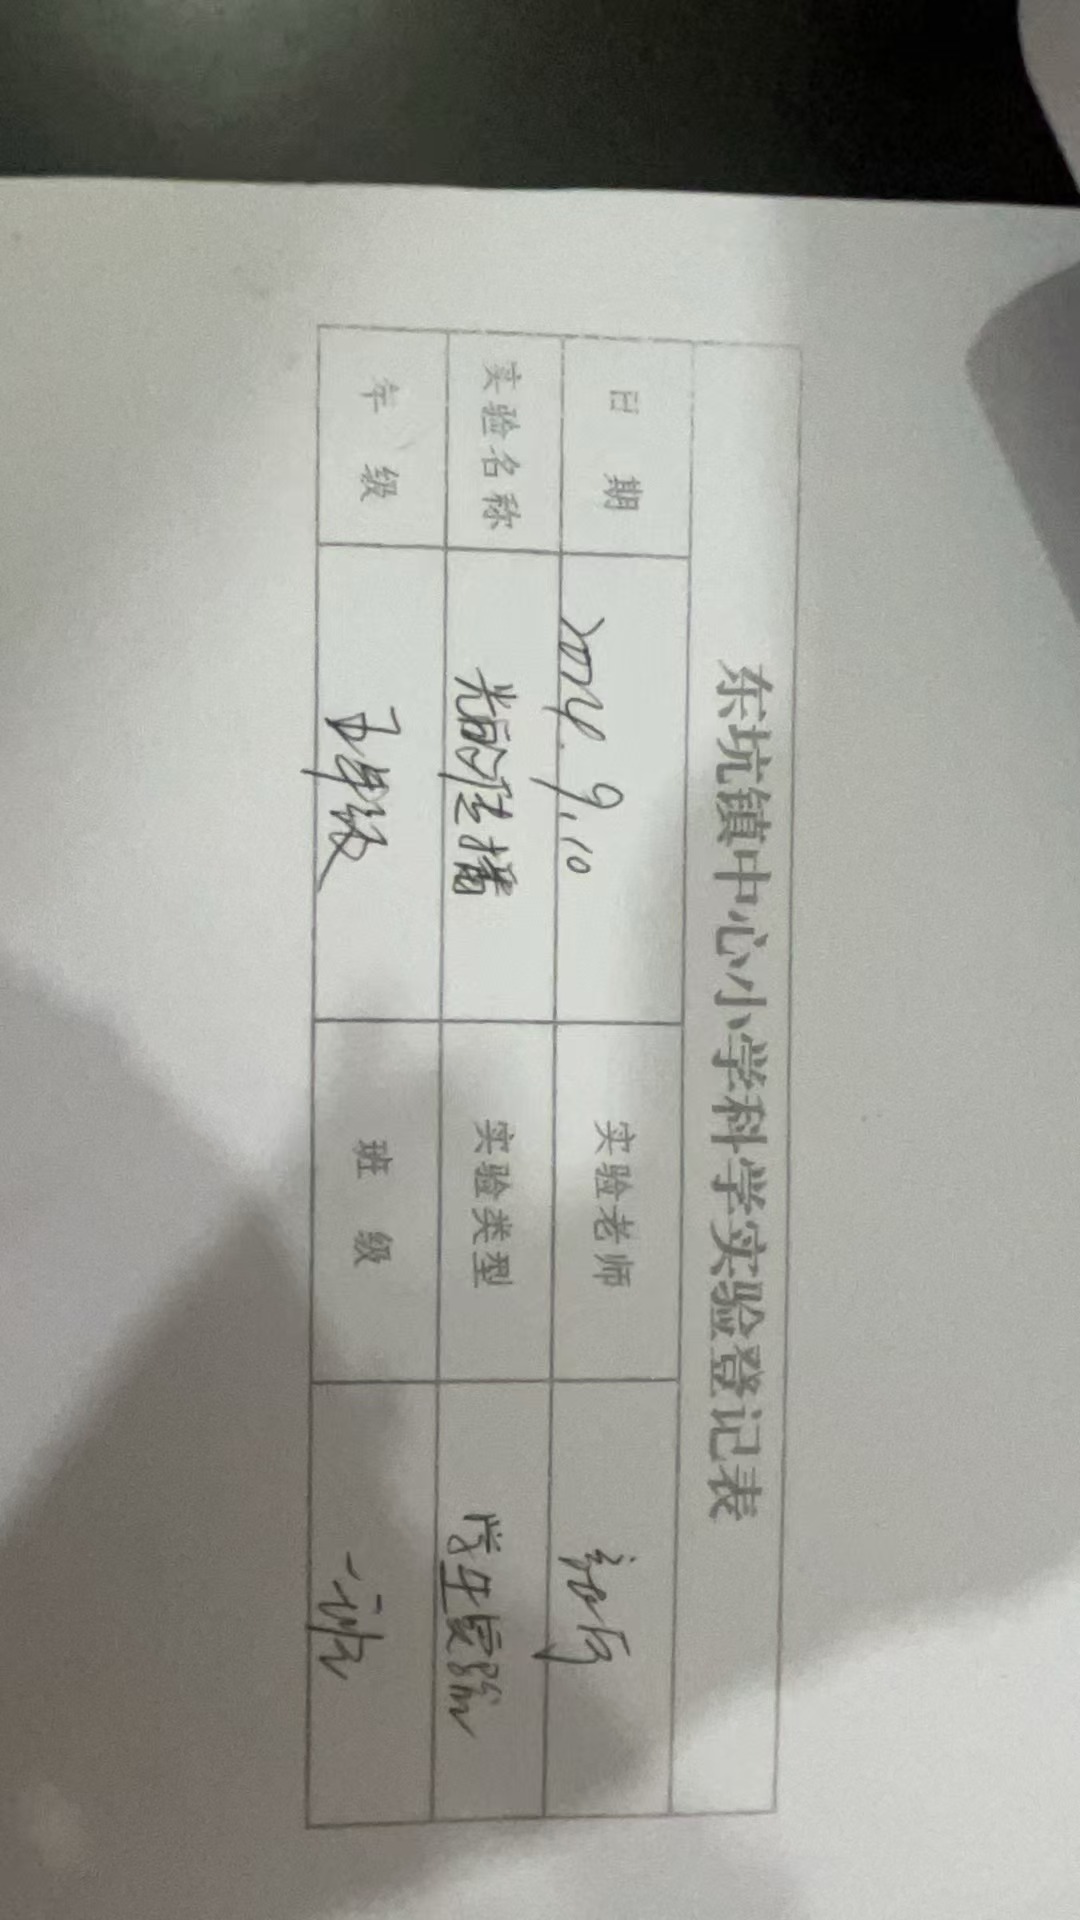 东坑镇中心小学科学实验登记表
日期 2024.9.10 实验老师
实验名称 光的传播 实验类型 学生实验
年级 五年级 班级 一班